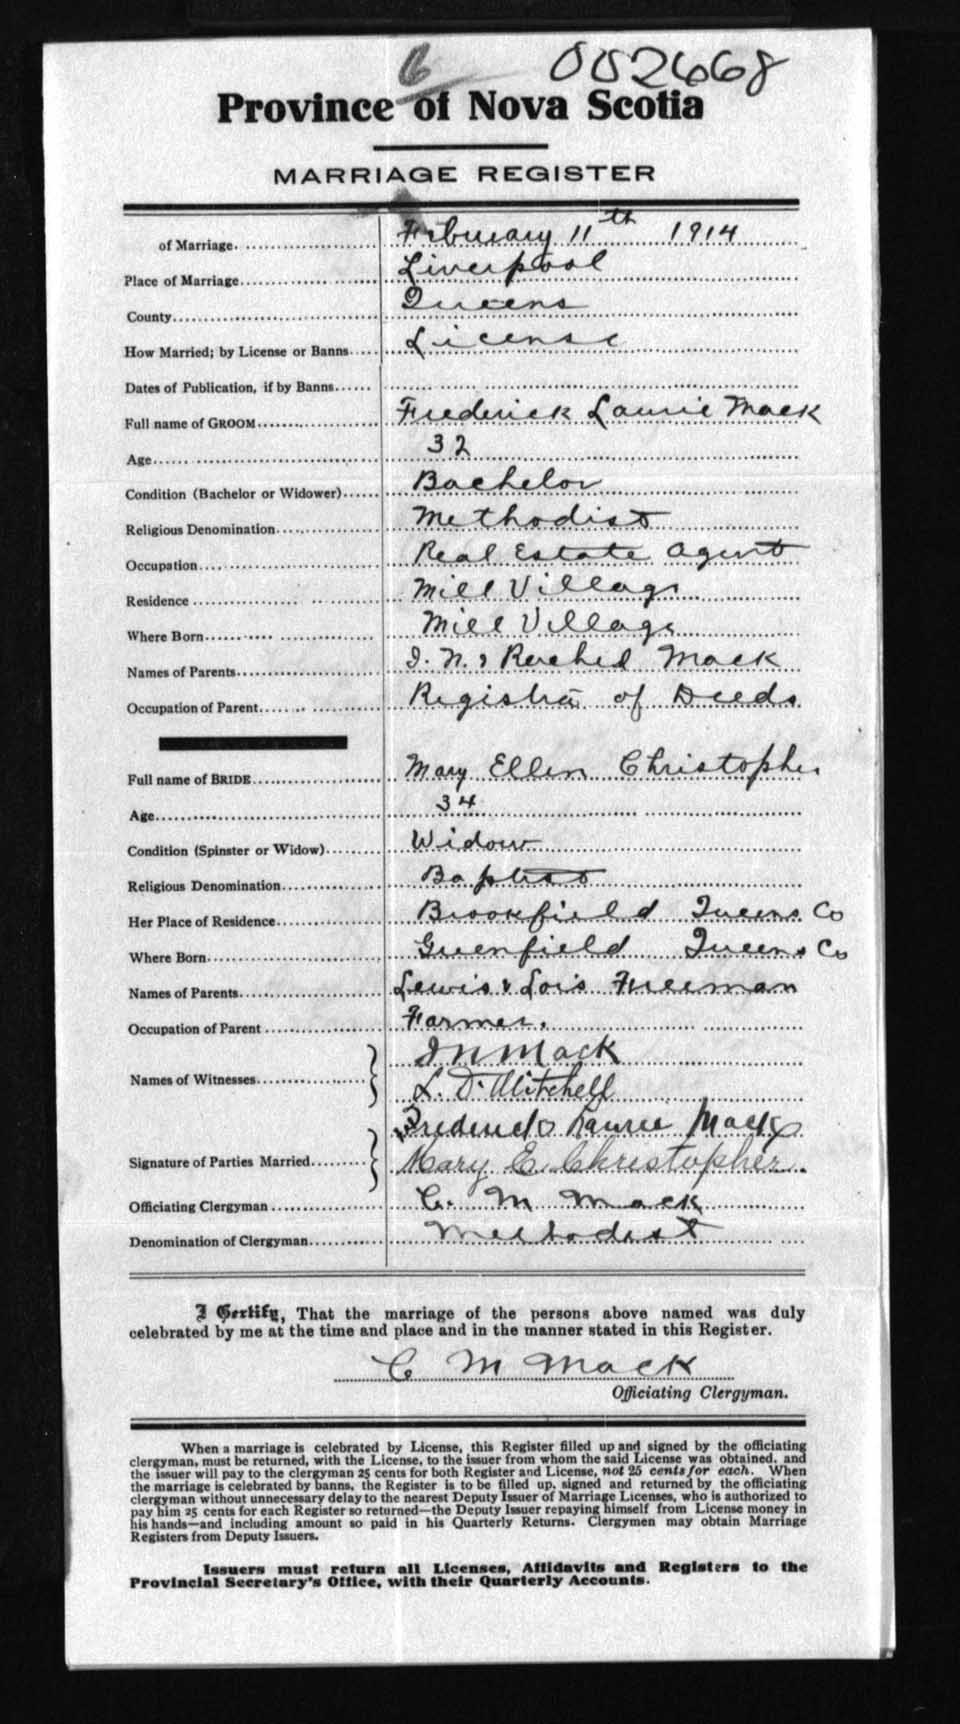 6 002668
Province of Nova Scotia
MARRIAGE REGISTER
of Marriage. February 11th 1914
Place of Marriage Liverpool
County Queens
How Married; by License or Banns License
Dates of Publication, if by Banns
Full name of GROOM Frederick Laurie Mack
Age 32
Condition (Bachelor or Widower) Bachelor
Religious Denomination Methodist
Occupation Real Estate Agent
Residence Mill Village
Where Born Mill Village
Names of Parents I. N. & Rachel Mack
Occupation of Parent Registrar of Deeds
Full name of BRIDE Mary Ellen Christopher
Age 34
Condition (Spinster or Widow) Widow
Religious Denomination Baptist
Her Place of Residence Brookfield Queens Co
Where Born Greenfield Queens Co
Names of Parents Lewis & Lois Freeman
Occupation of Parent Farmer.
I N Mack
Names of Witnesses
L. D. Mitchell
Frederick Laurie Mack
Signature of Parties Married Mary E. Christopher
Officiating Clergyman C. M Mack
Denomination of Clergyman Methodist
I Certify, That the marriage of the persons above named was duly
celebrated by me at the time and place and in the manner stated in this Register.
C M Mack
Officiating Clergyman.
When a marriage is celebrated by License, this Register filled up and signed by the officiating
clergyman, must be returned, with the License, to the issuer from whom the said License was obtained, and
the issuer will pay to the clergyman 25 cents for both Register and License, not 25 cents for each. When
the marriage is celebrated by banns, the Register is to be filled up, signed and returned by the officiating
clergyman without unnecessary delay to the nearest Deputy Issuer of Marriage Licenses, who is authorized to
pay him 25 cents for each Register so returned—the Deputy Issuer repaying himself from License money in
his hands—and including amount so paid in his Quarterly Returns. Clergymen may obtain Marriage
Registers from Deputy Issuers.
Issuers must return all Licenses, Affidavits and Registers to the
Provincial Secretary's Office, with their Quarterly Accounts.